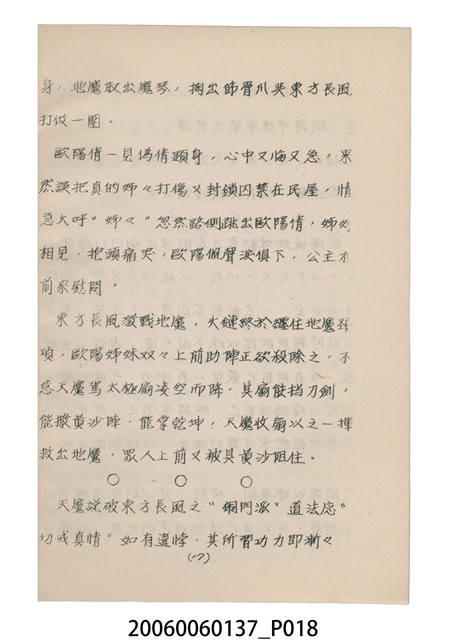 身，地魔取出魔琴，擲出飾晉爪與東方長風
打做一團。
歐陽倩一見偽倩顯身，心中又悔又急，果
然誤把真的姊々打傷又封鎖囚禁在民屋，情
急大呼"姊々"忽然路側跳出歐陽倩，姊妹
相見，抱頭痛哭，歐陽佩聲淚俱下，公主亦
前來慰問。
東方長風激戰地魔，火鏈終於纏住地魔頸
項，歐陽姊妹双々上前助陣正欲殺除之，不
意天魔駕太極扇凌空而降，其扇能挡刀劍，
能撒黃沙陣，能掌乾坤，天魔收扇以之一揮
救出地魔，眾人上前又被其黃沙阻住。
○ ○ ○
天魔説破東方長風之"銅門派"道法應"
切戒真情"如有違悖，其所習功力即漸々
(17)
20060060137_P018